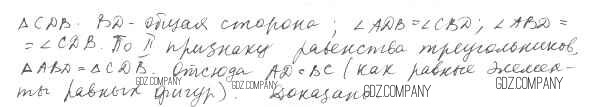 △CDB. BD - общая сторона; ∠ADB = ∠CBD; ∠ABD =
= ∠CDB. По II признаку равенства треугольников,
△ABD = △CDB. Отсюда AD = BC (как равные элемен-
ты равных фигур). Доказано.
GDZ.COMPANY GDZ.COMPANY GDZ.COMPANY GDZ.COMPANY